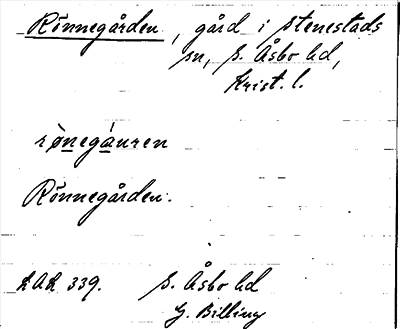 Rönnegården, gård i Stenestads
sn, S. Åsbo hd,
Krist. l.
rönegåuren
Rönnegården.
LAL 339. S. Åsbo hd
G. Billing